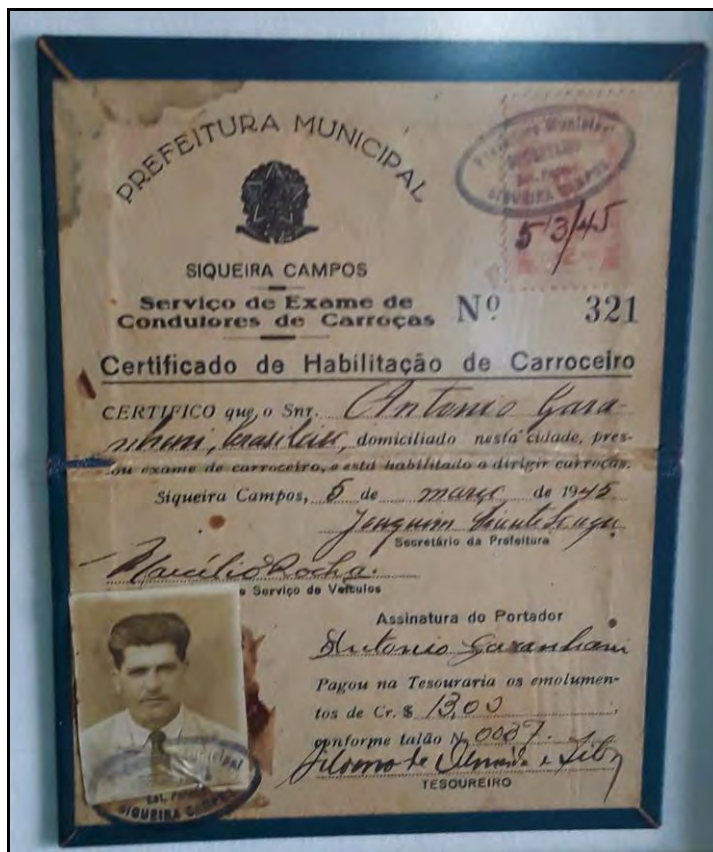 PREFEITURA MUNICIPAL
SIQUEIRA CAMPOS
Serviço de Exame de
Condutores de Carroças
Nº 321
Prefeitura Municipal
SIQUEIRA CAMPOS
5/3/45
Certificado de Habilitação de Carroceiro
CERTIFICO que, o Snr. Antonio Gara-
nhani, brasileiro, domiciliado nesta cidade, pres-
tou exame de carroceiro, e está habilitado a dirigir carroças.
Siqueira Campos, 5 de março de 1945
Joaquim
Secretário da Prefeitura
Marcílio Rocha
Serviço de Veículos
Assinatura do Portador
Antonio Garanhani
Pagou na Tesouraria os emolumen-
tos de Cr. $ 13,00,
conforme talão N. 0037.
de Almeida e Silva
TESOUREIRO
Municipal
Est. Paraná
SIQUEIRA CAMPOS